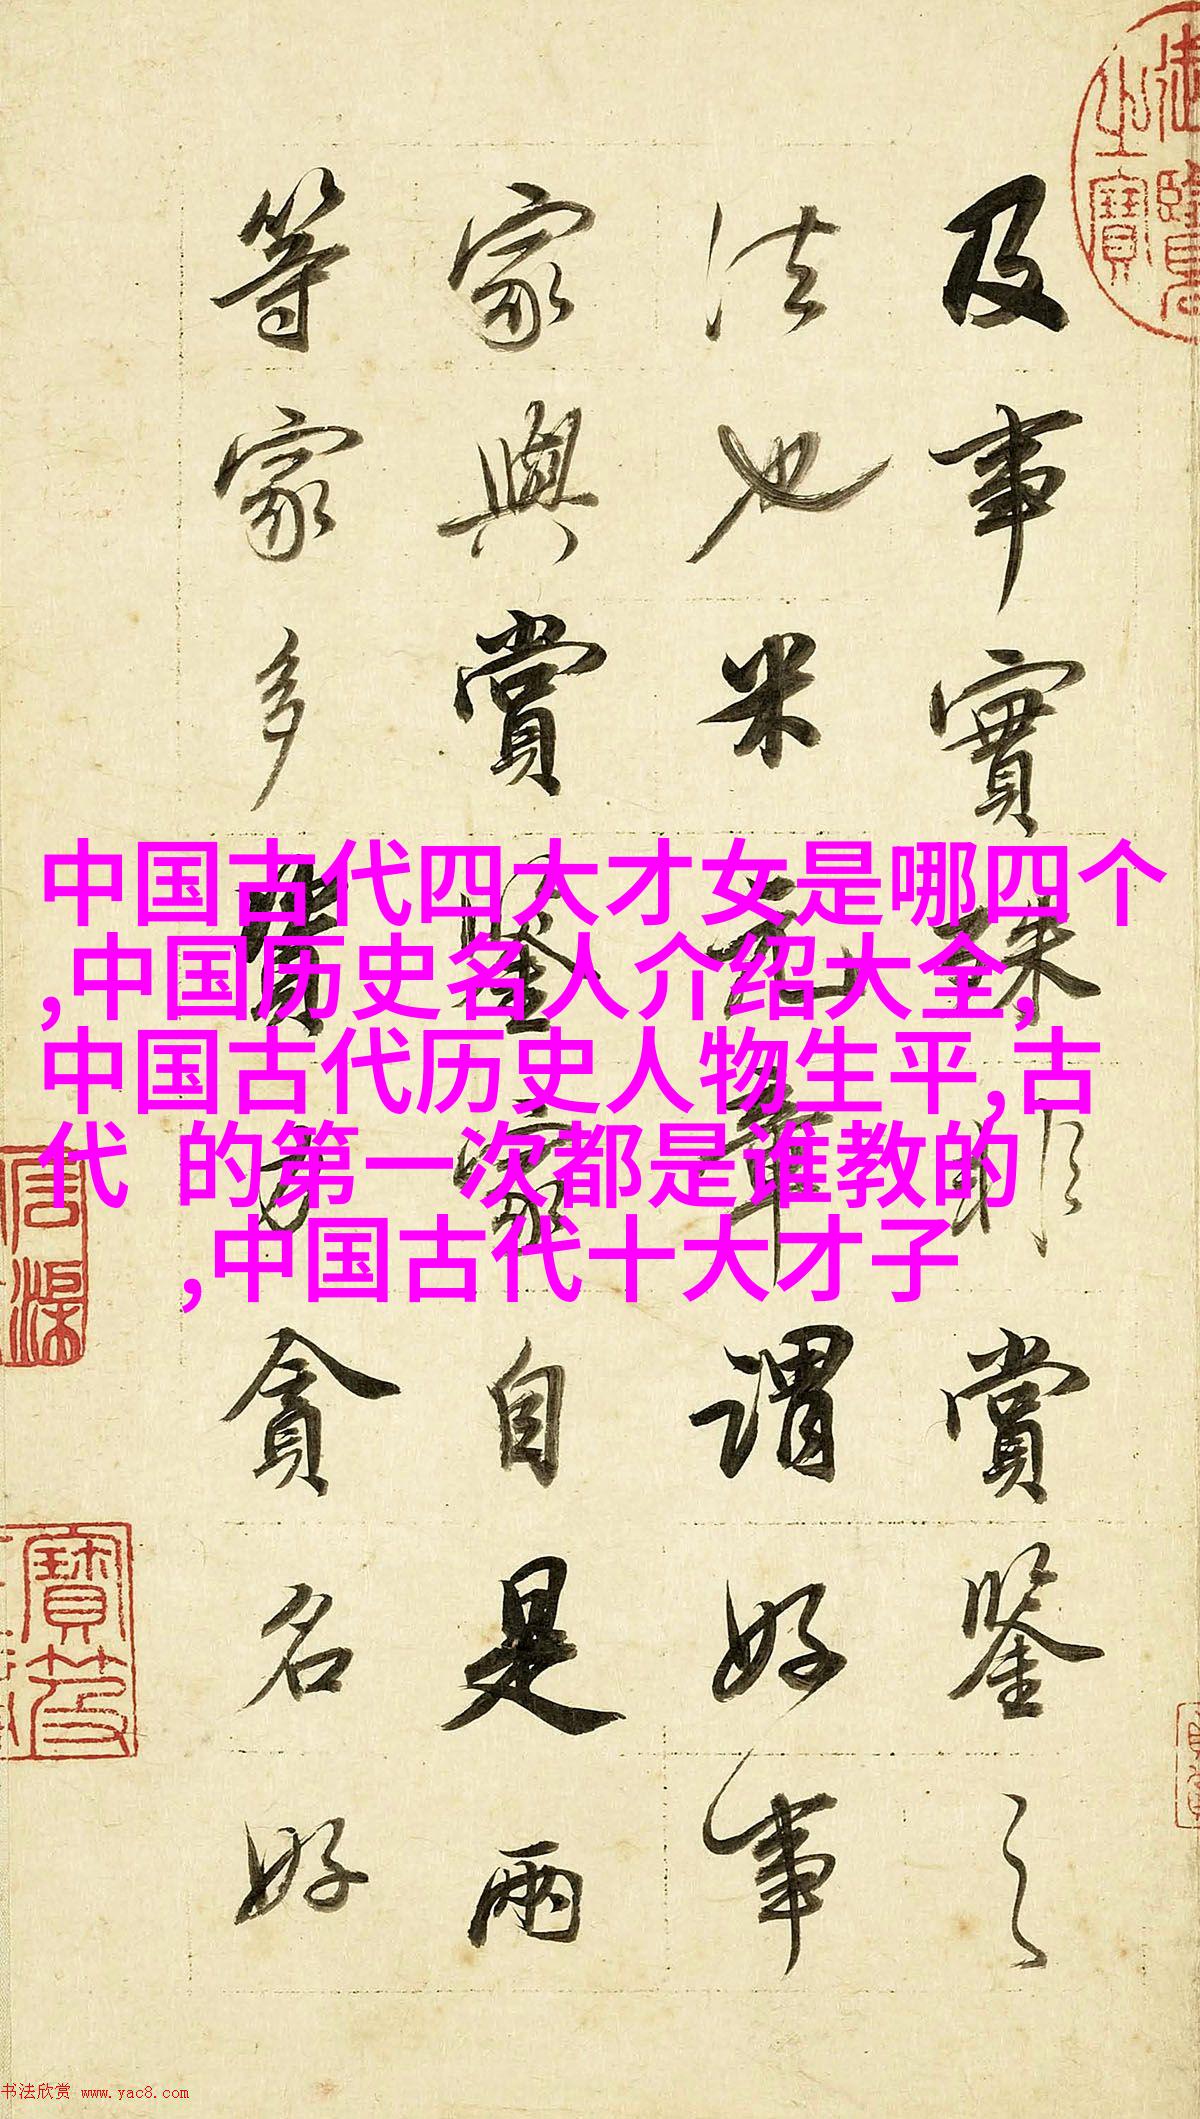 中国古代四大才女是哪四个
,中国历史名人介绍大全,
中国古代历史人物生平,古
代 的第一次都是谁教的
,中国古代十大才子
及事實殊賞鑒之
法也米元章謂好事
家與賞鑒家自是兩
等家多資力貪名好
书法欣赏 www.yac8.com